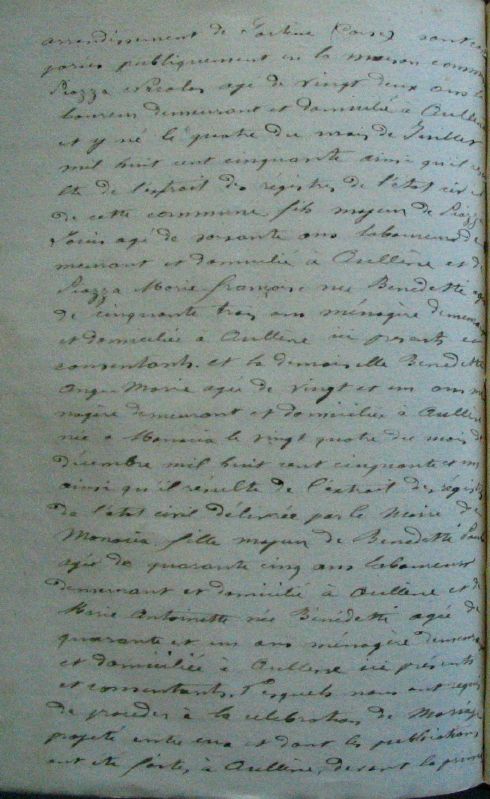 arrondissement de Sartène (Corse) sont com
parus publiquement en la maison commune
Piazza Nicolas agé de vingt deux ans la
boureur demeurant et domicilié à Aullène
et y né le quatre du mois de Juillet
mil huit cent cinquante ainsi qu'il résu
lte de l'extrait des régistres de l'état civil
de cette commune fils majeur de Piazza
Louis agé de soixante ans laboureur de
meurant et domicilié à Aullène et de
Piazza Marie françoise née Benedetti agée
de cinquante trois ans ménagère demeurant
et domiciliée à Aullène ici présents et
consentants. et la demoiselle Benedetti
Ange Marie agée de vingt et un ans mé
nagère demeurant et domiciliée à Aullène
née à Monacia le vingt quatre du mois de
décembre mil huit cent cinquante et un
ainsi qu'il résulte de l'extrait des régistres
de l'état civil délivrée par le Maire de
Monacia fille majeur de Benedetti Paul
agée de quarante cinq ans laboureur
demeurant et domicilié à Aullène et de
Marie Antoinette née Bénédetti agée de
quarante et un ans ménagère demeurant
et domiciliée à Aullène ici présents
et consentants. Lesquels nous ont requis
de procéder à la célébration du Mariage
projeté entre eux et dont les publications
ont été faites à Aullène, devant la